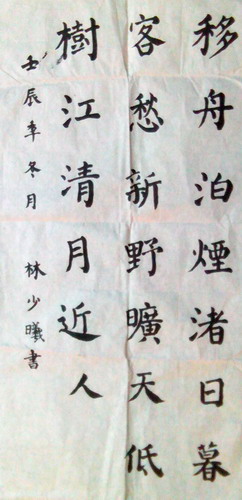 移舟泊煙渚日暮
客愁新野曠天低
樹江清月近人
壬辰年冬月 林少曦書